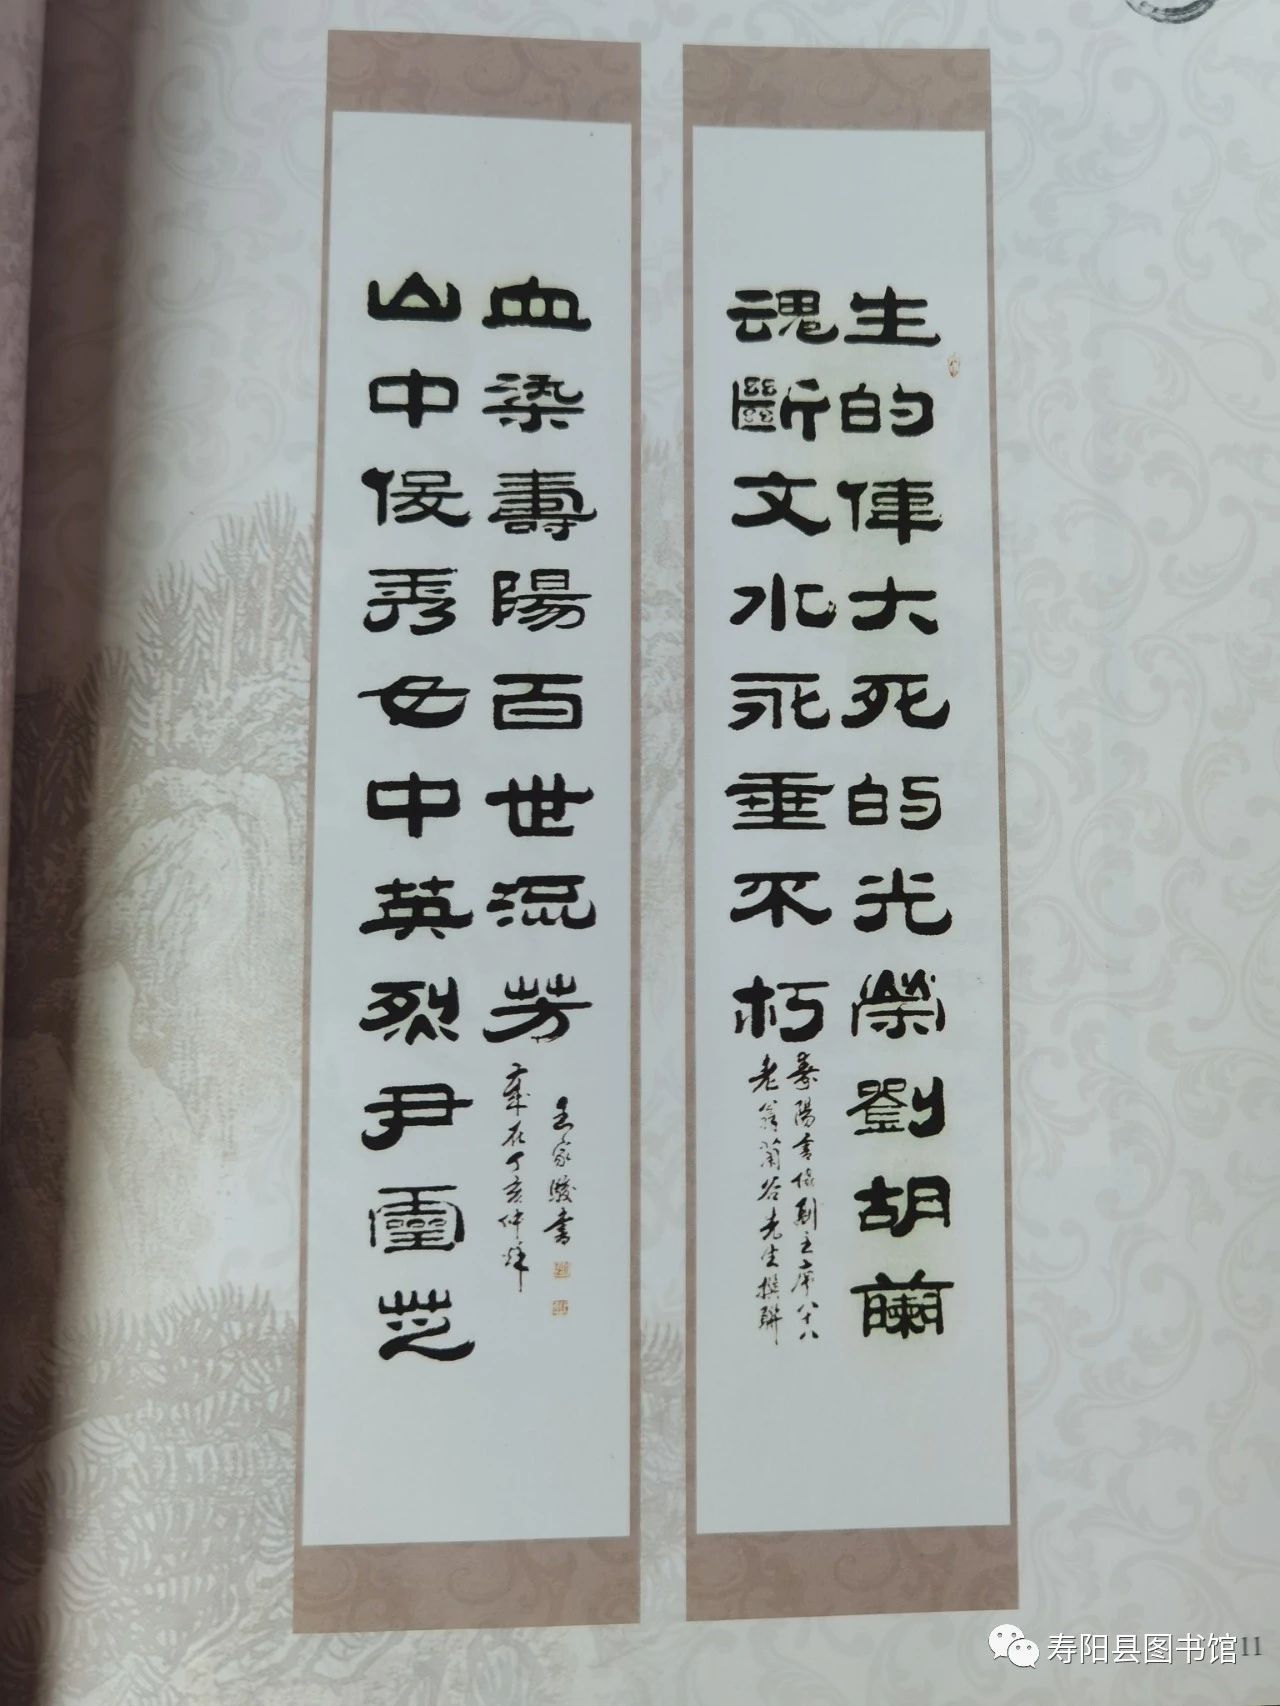 生的偉大死的光榮劉胡蘭
魂斷文水永垂不朽
壽陽書協副主席八十八
老翁蘭谷先生撰聯
山中俊秀女中英烈尹靈芝
血染壽陽百世流芳
歲在丁亥仲秋
王家駿書
寿阳县图书馆
11